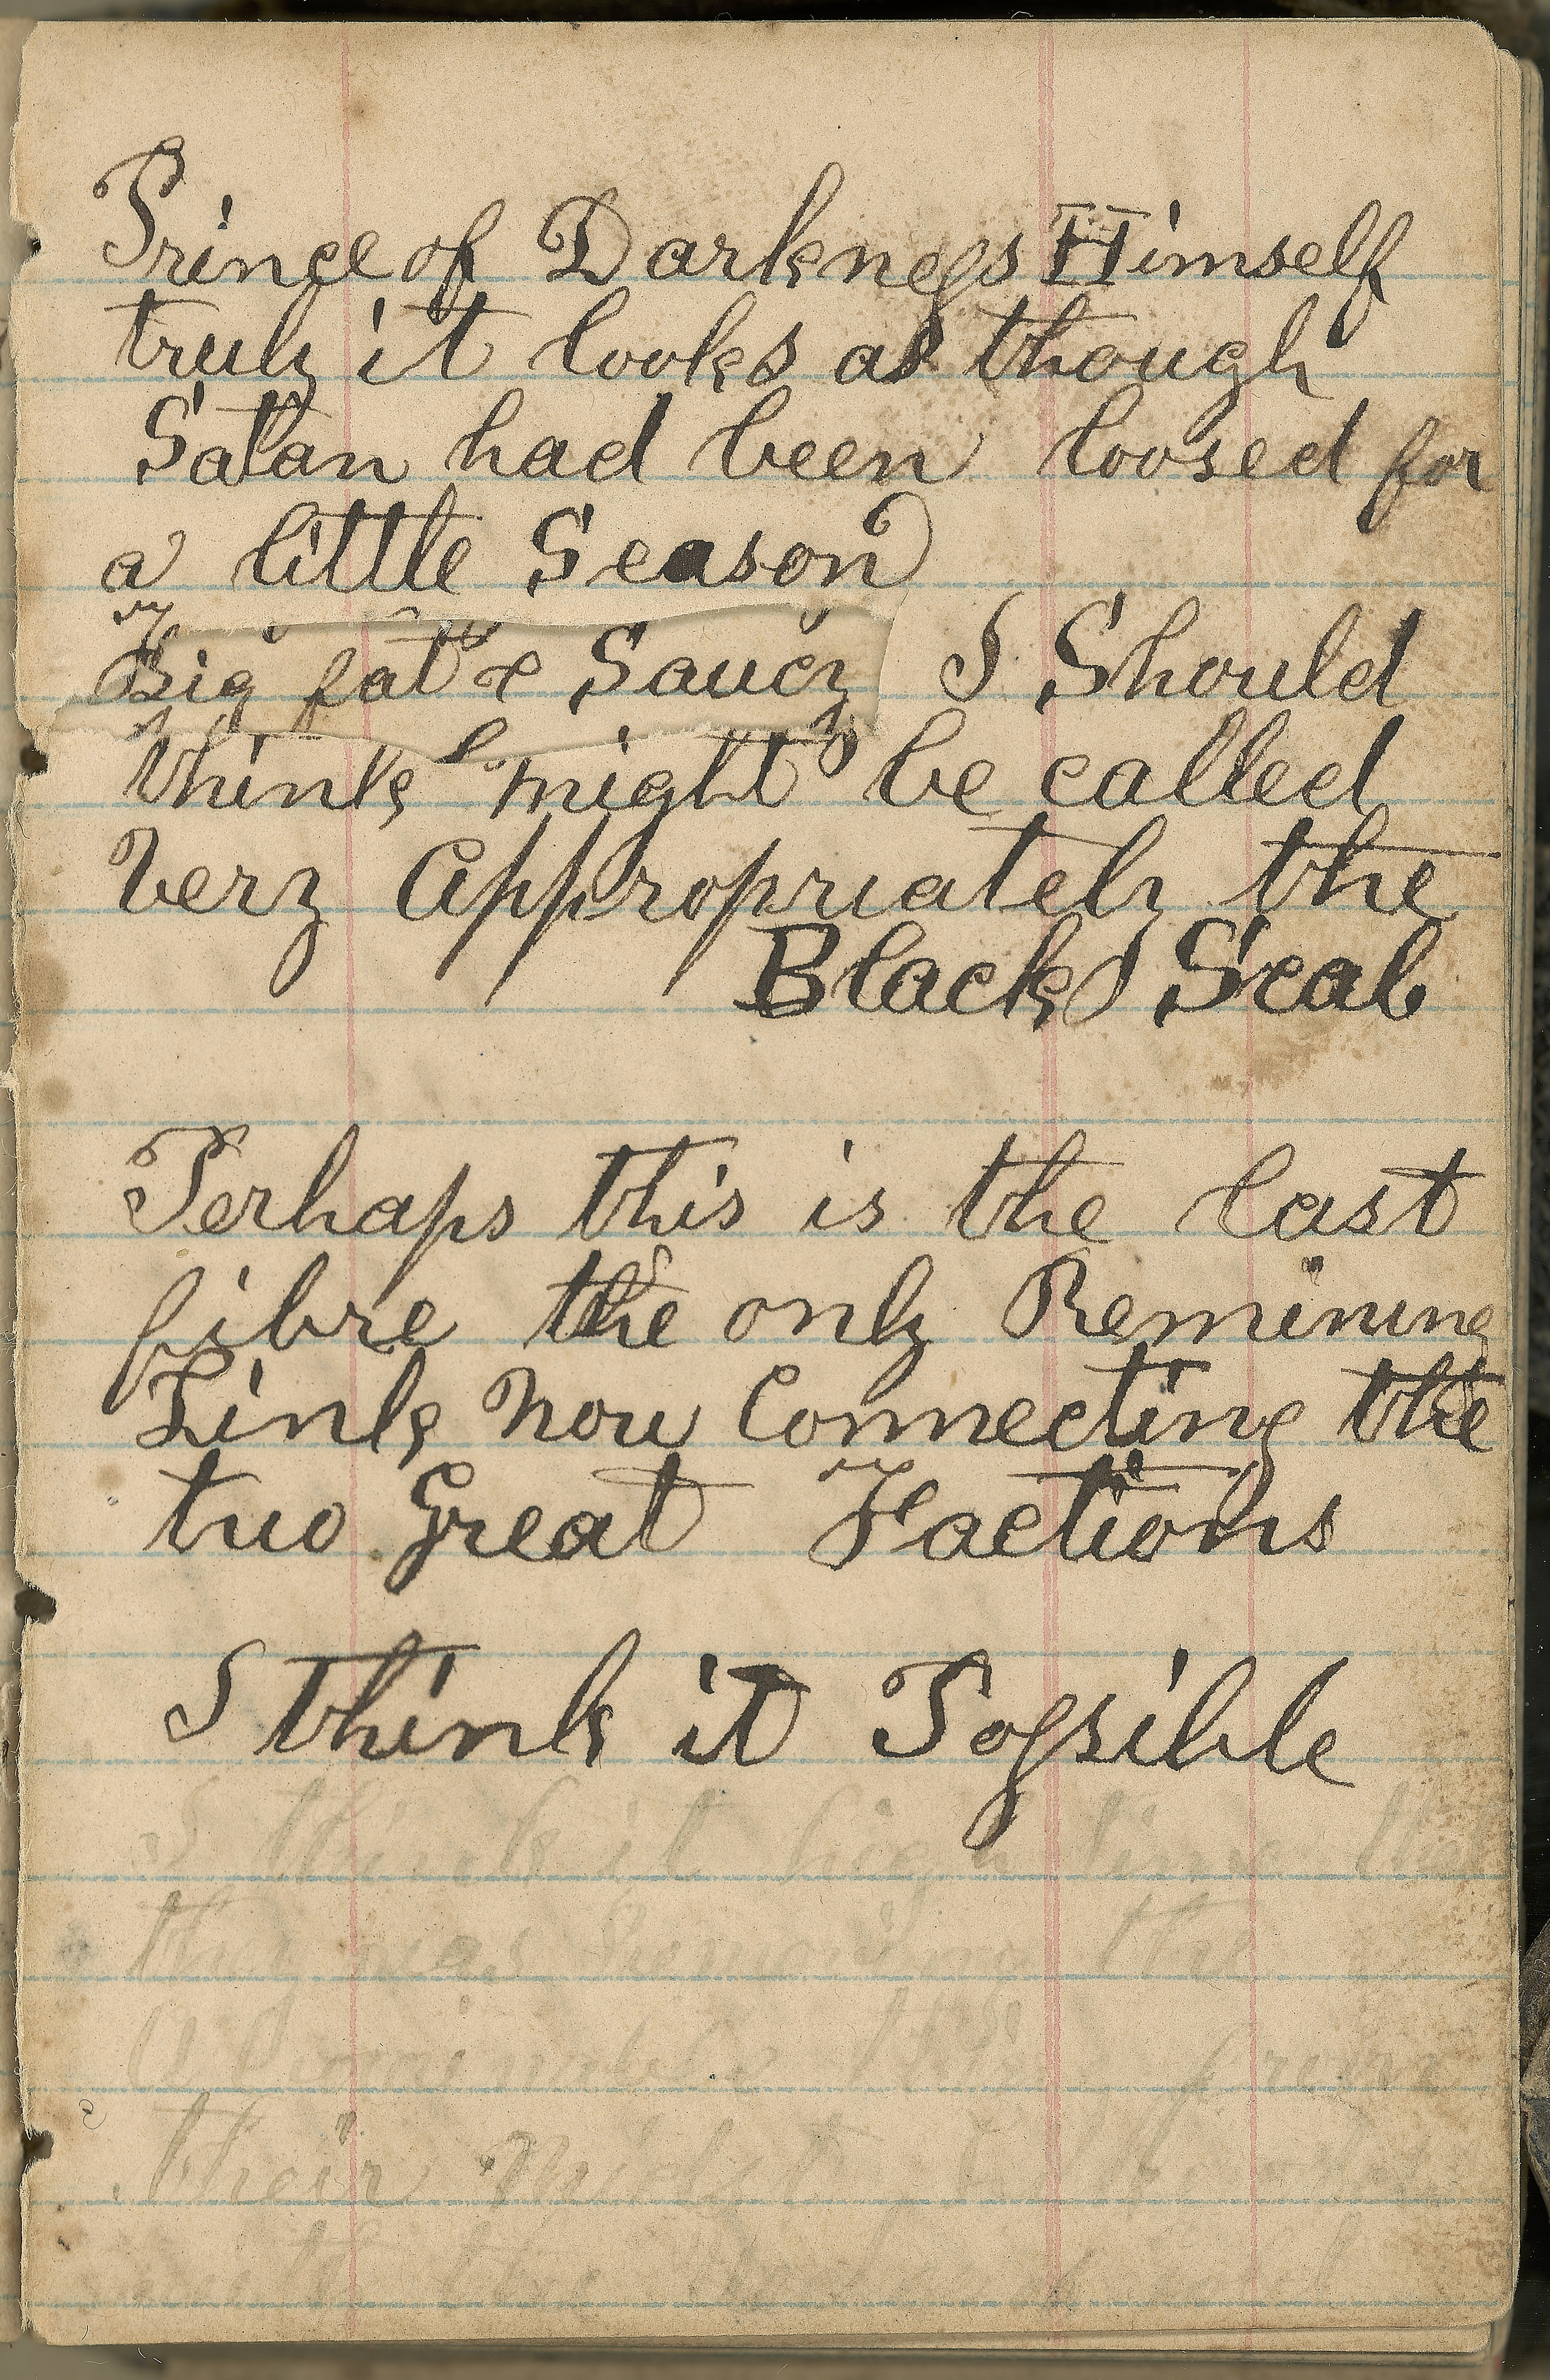 Prince of Darkness Himself
truly it looks as though
Satan had been loosed for
a little Season
Big fat & Saucy I Should
think might be called
Very Appropriately the
Black Scab
Perhaps this is the last
fibre the only Remining
Link Now Connecting the
two Great Factions
I think it Possible
I think it high time that
they was Removing the
from
their Midst